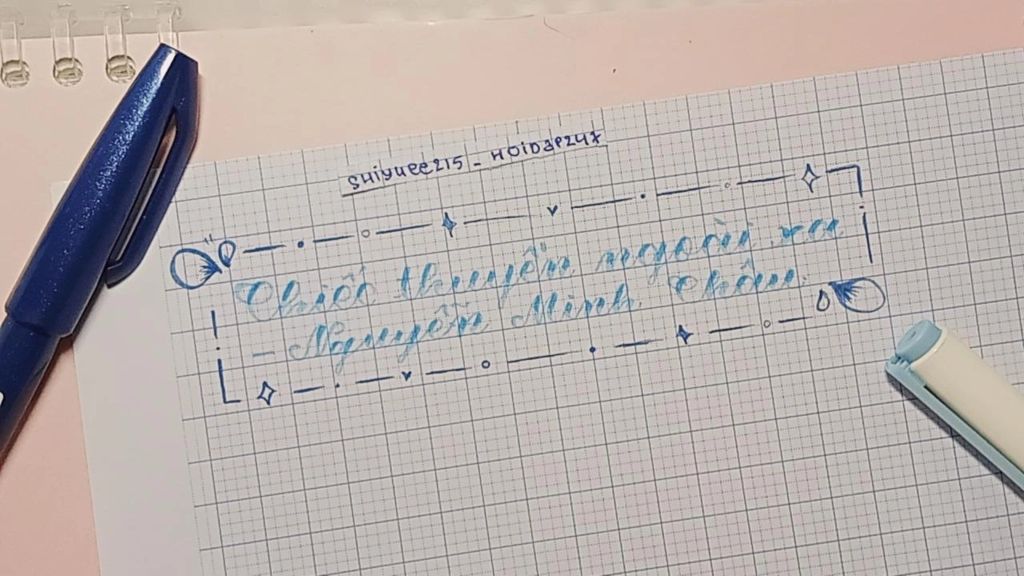 shiyuee215 _ HOIDAP247
Chiếc thuyền ngoài xa
- Nguyễn Minh Châu.